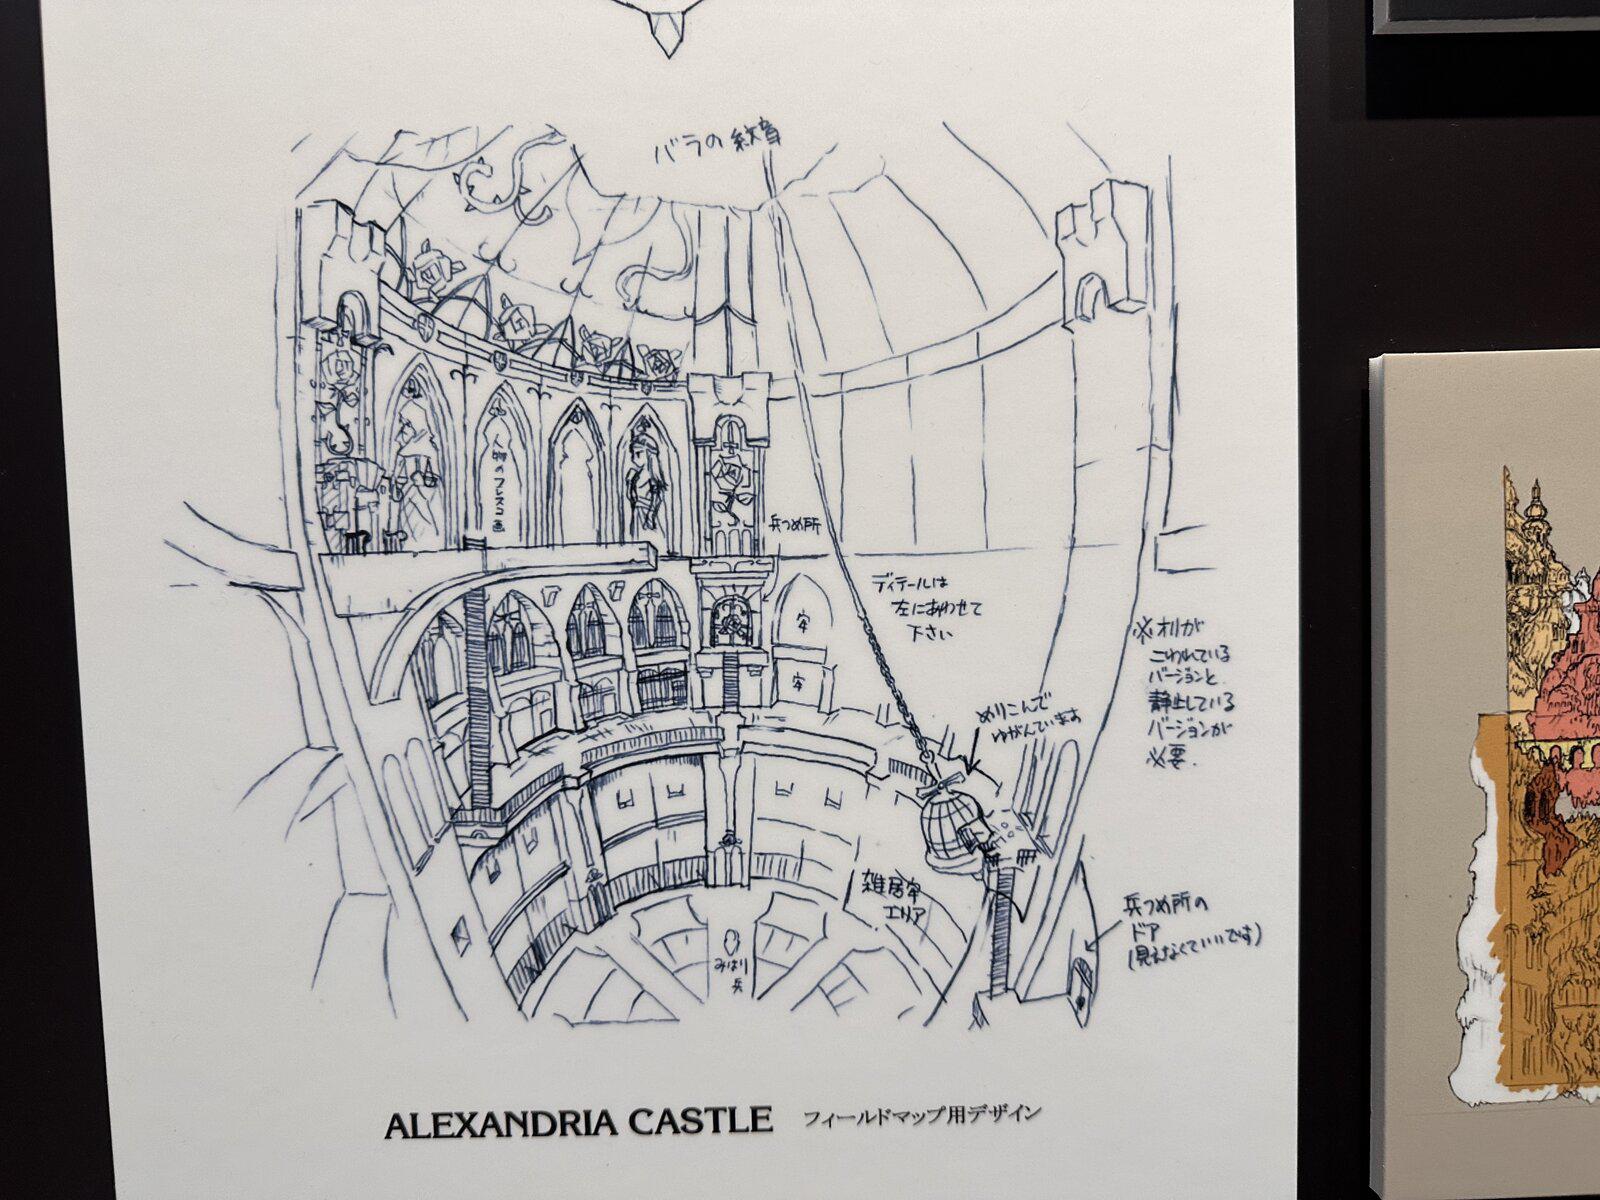 バラの紋章
人物のフレスコ画
兵つめ所
牢
牢
ディテールは
左にあわせて
下さい
めりこんで
ゆがんでいます
※オリが
こわれている
バージョンと
静止している
バージョンが
必要.
雑居牢
エリア
みはり
兵
兵つめ所の
ドア
(見えなくていいです)
ALEXANDRIA CASTLE フィールドマップ用デザイン